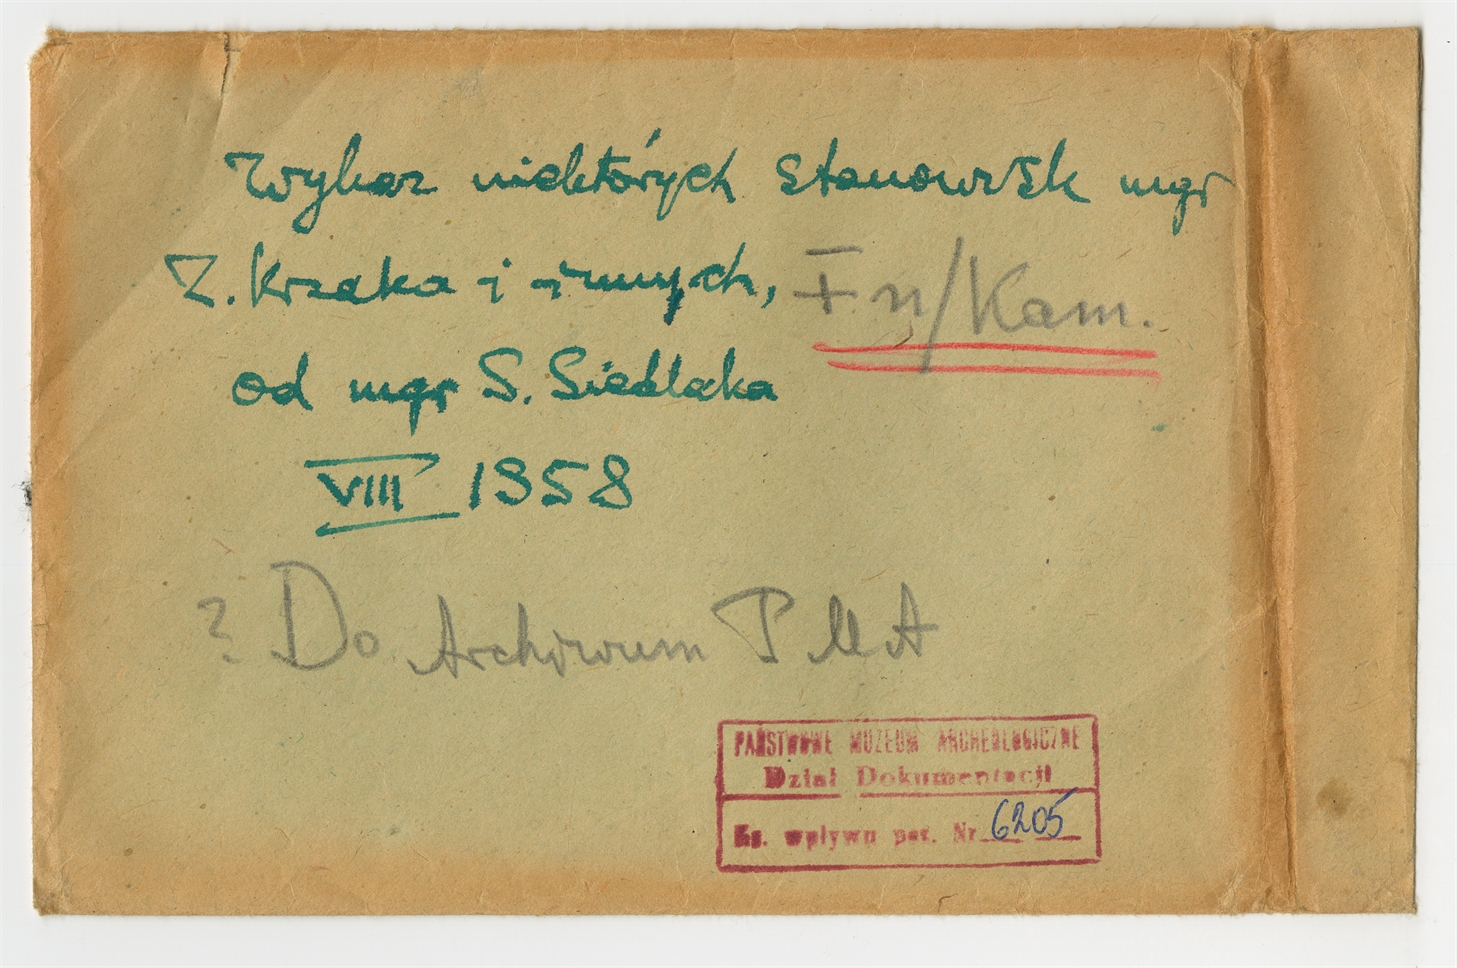 Wykaz niektórych stanowisk mgr
Z. Krzaka i innych, Fn/Kam.
od mgr S. Siedlaka
VIII 1958
? Do Archiwum PMA
PAŃSTWOWE MUZEUM ARCHEOLOGICZNE
Dział Dokumentacji
Ks. wpływu poz. Nr 6205